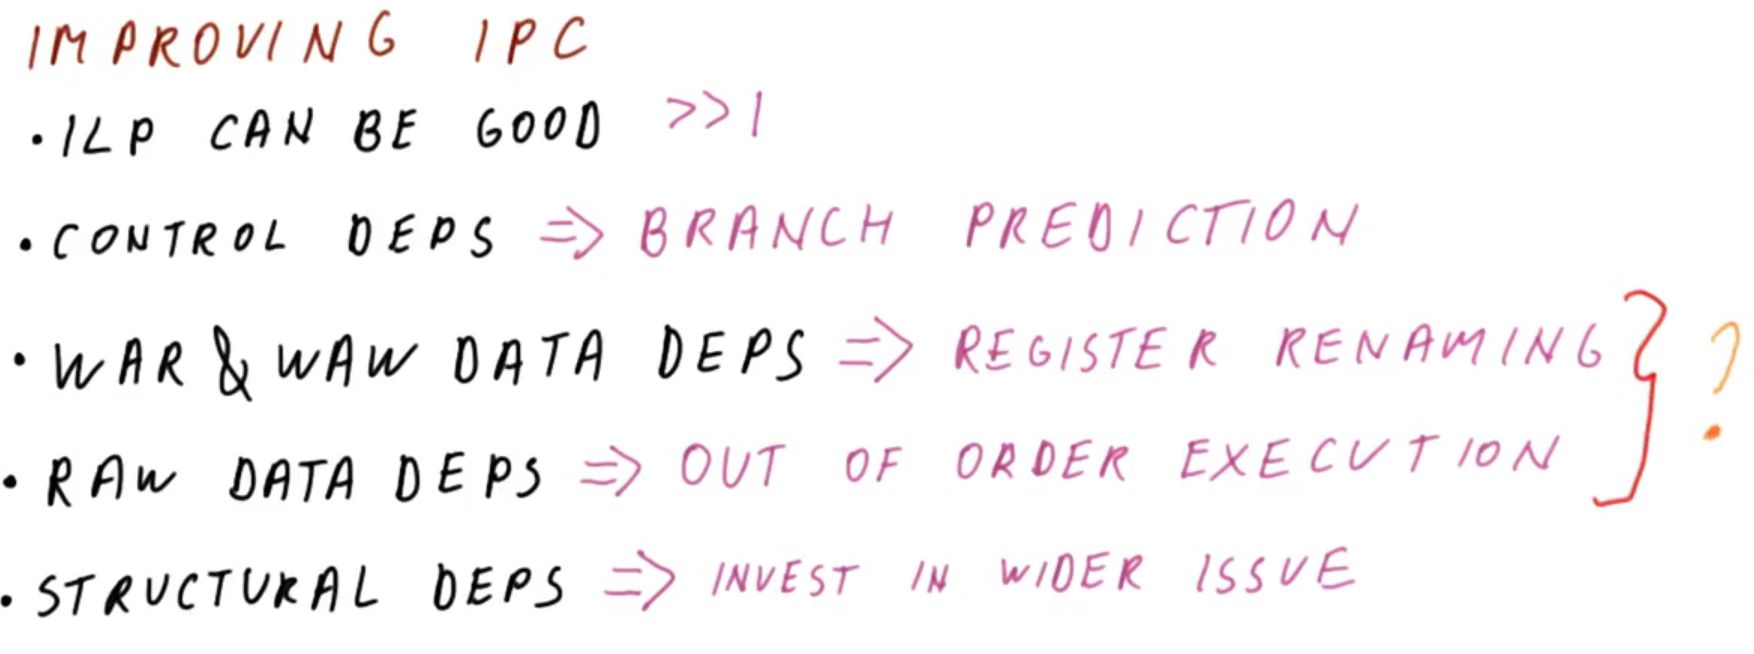 IMPROVING IPC
• ILP CAN BE GOOD >>1
• CONTROL DEPS ⇒ BRANCH PREDICTION
• WAR & WAW DATA DEPS ⇒ REGISTER RENAMING } ?
• RAW DATA DEPS ⇒ OUT OF ORDER EXECUTION
• STRUCTURAL DEPS ⇒ INVEST IN WIDER ISSUE